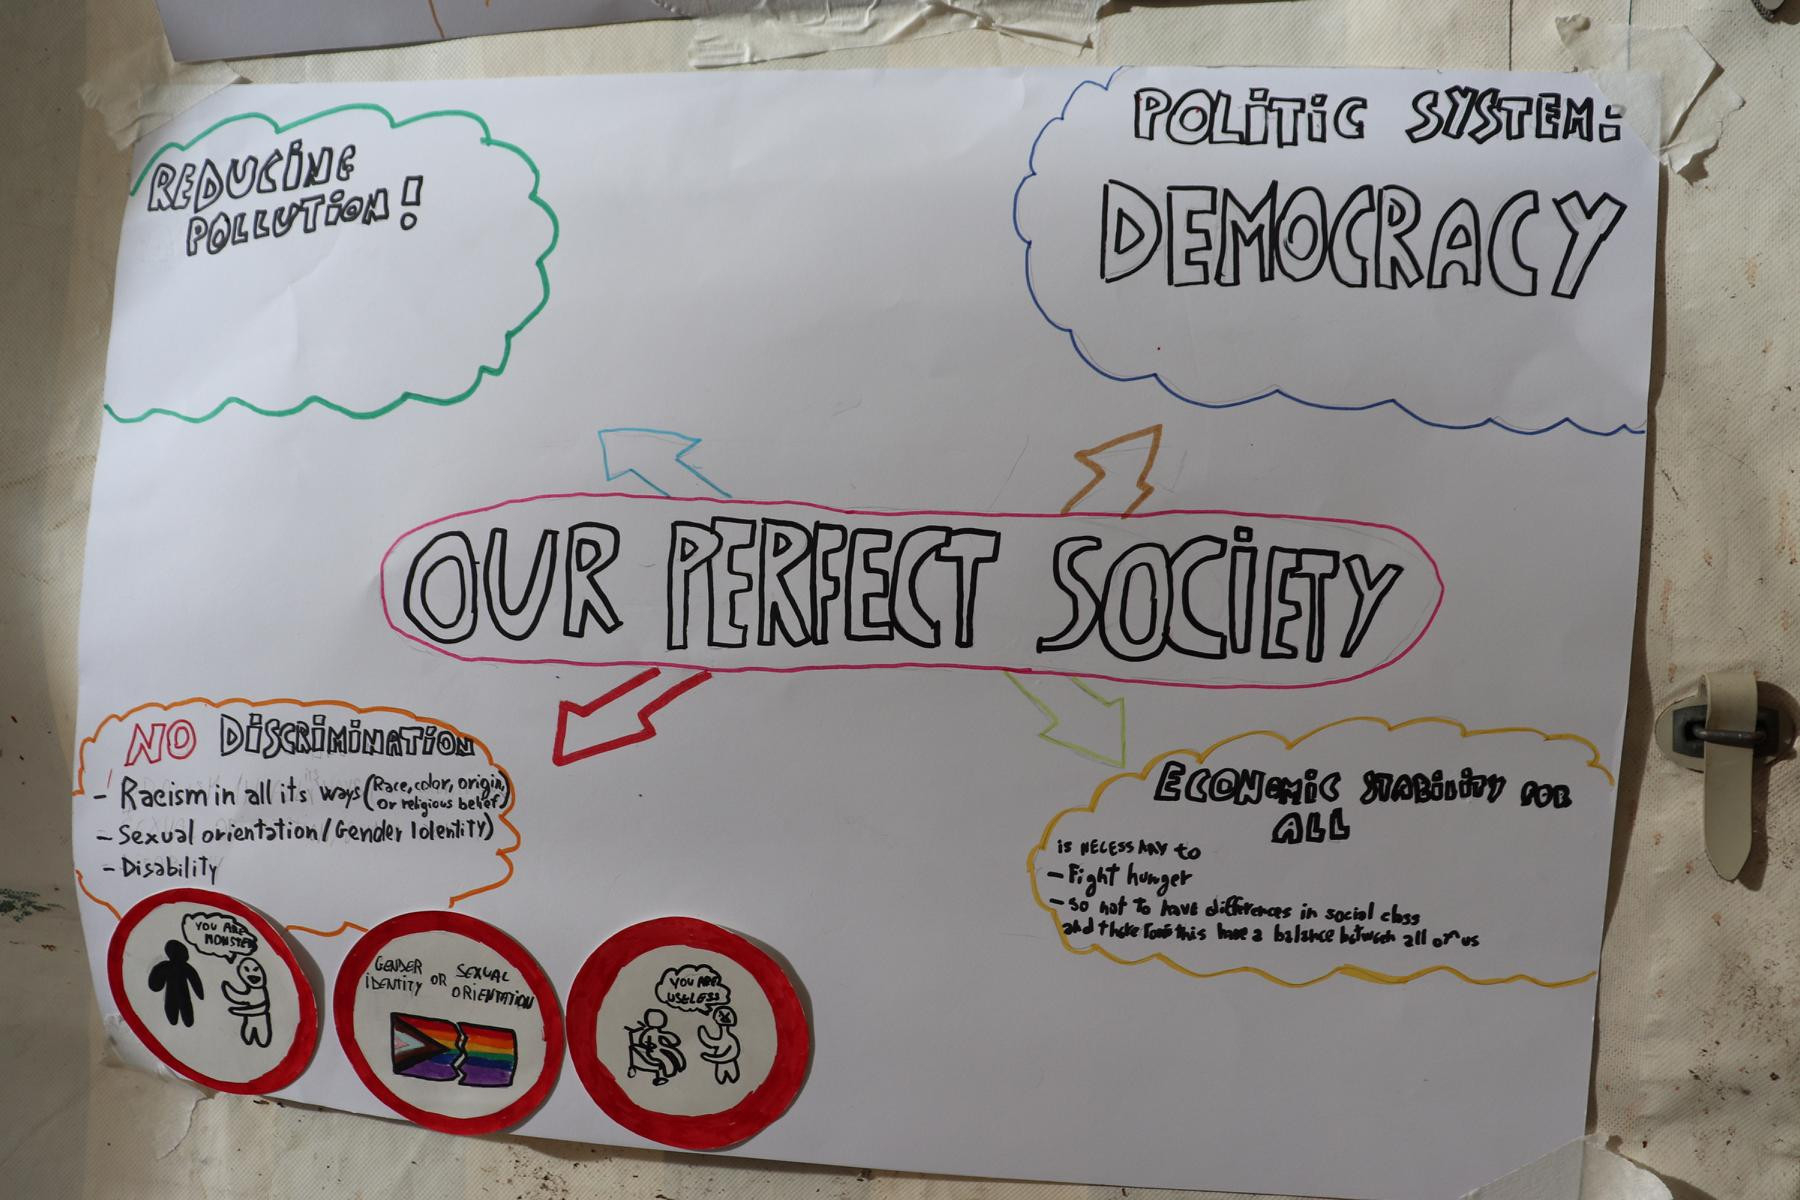 REDUCING
POLLUTION!
POLITIC SYSTEM:
DEMOCRACY
OUR PERFECT SOCIETY
NO DISCRIMINATION
- Racism in all its ways (Race, color, origin,
or religious belief)
- Sexual orientation/Gender Identity)
- Disability
YOU ARE
MONSTER
GENDER
IDENTITY OR SEXUAL
ORIENTATION
YOU ARE
USELESS
ECONOMIC STABILITY FOR
ALL
IS NECESSARY to
- Fight hunger
- So not to have differences in social class
and therefore this have a balance between all of us